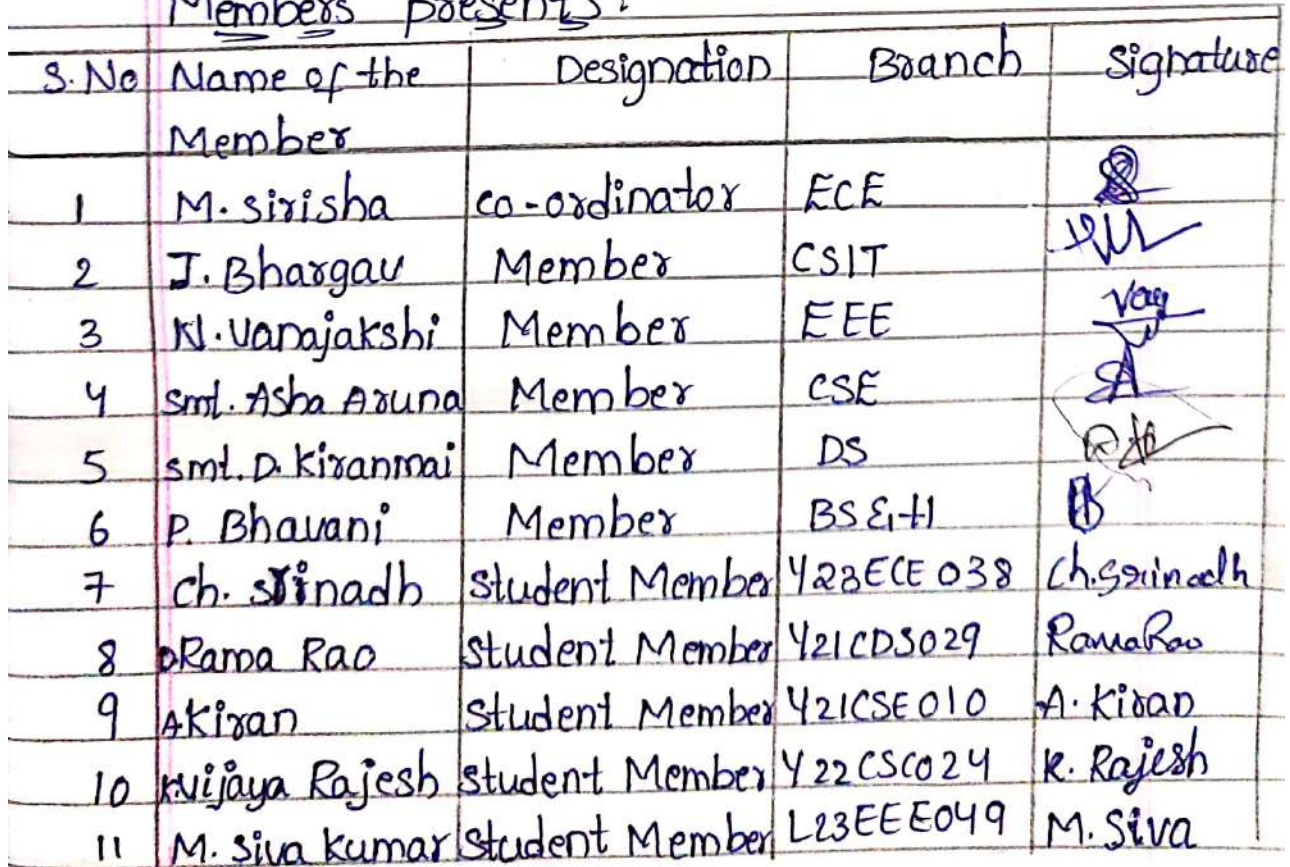 Members presents:
S.No Name of the Member Designation Branch Signature
1 M. sirisha co-ordinator ECE
2 J. Bhargav Member CSIT
3 N. Vanajakshi Member EEE
4 smt. Asha Aruna Member CSE
5 smt. D. Kiranmai Member DS
6 P. Bhavani Member BS & H
7 ch. srinadh student Member Y23ECE038 ch.srinadh
8 D Rama Rao student Member Y21CDS029 RamaRao
9 A Kiran student Member Y21CSE010 A. Kiran
10 K Vijaya Rajesh student Member Y22CSC024 K. Rajesh
11 M. Siva Kumar student Member L23EEE049 M. Siva